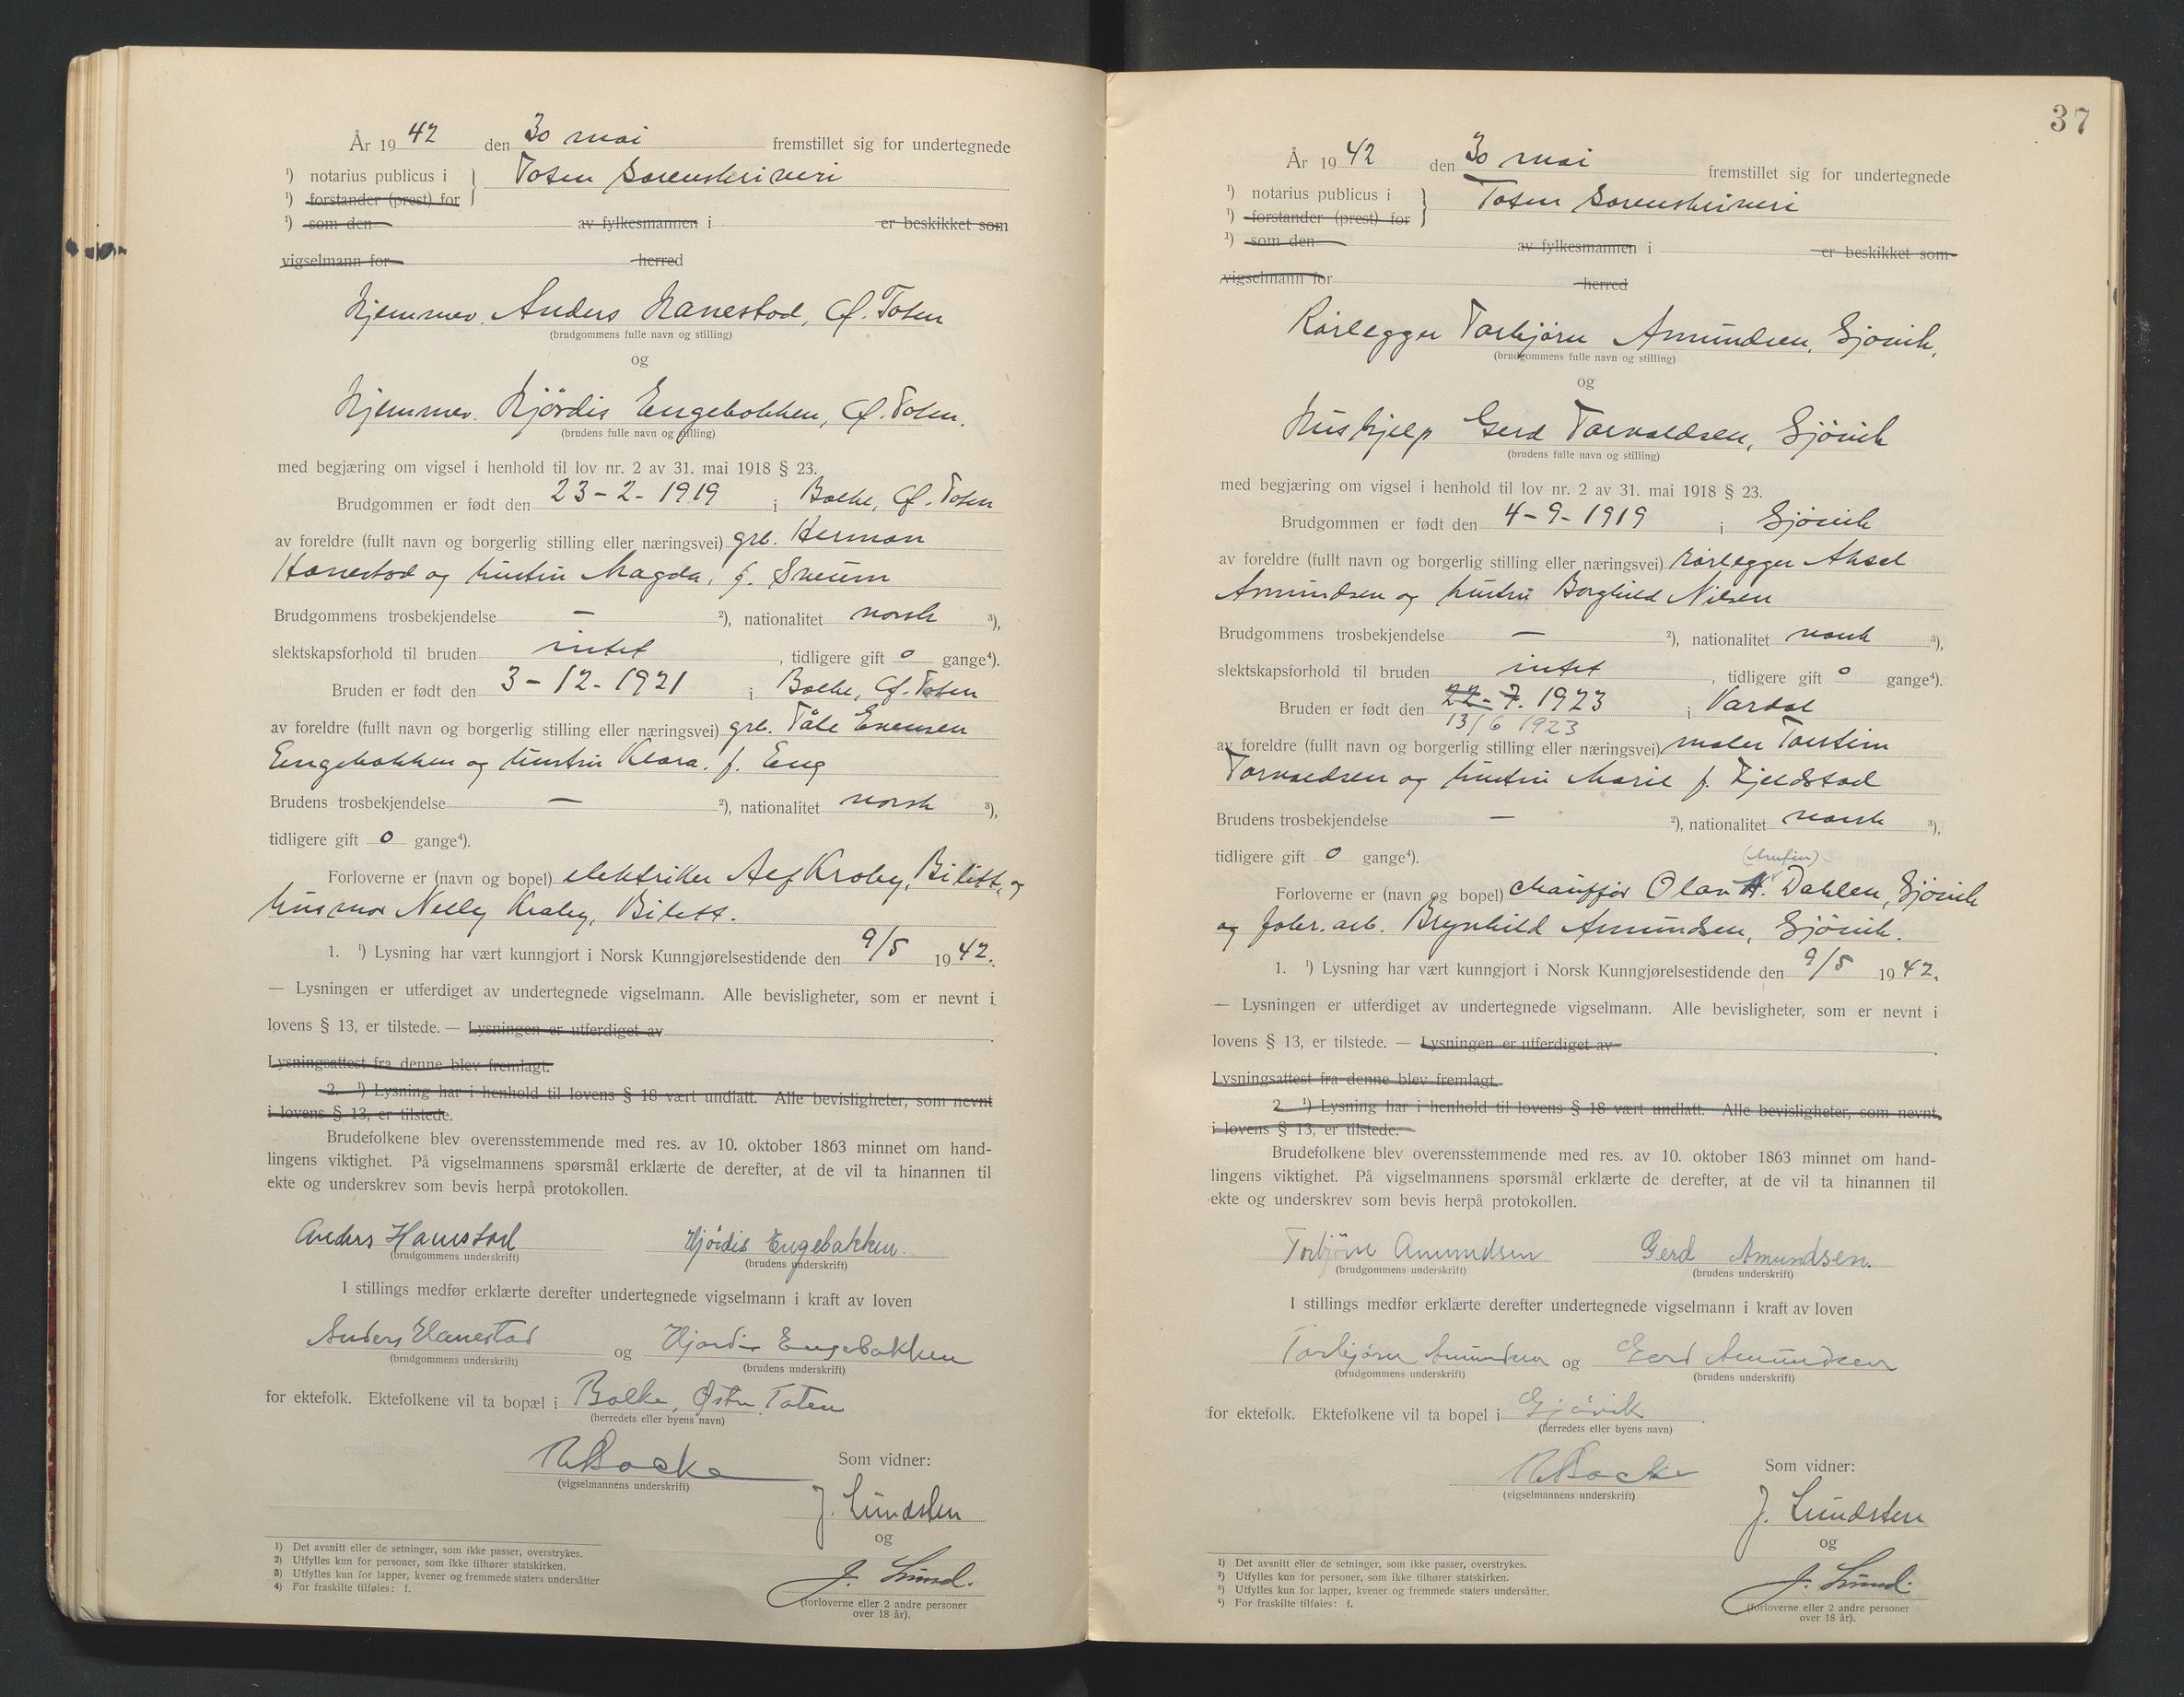 År 1942 den 30 mai fremstillet sig for undertegnede
¹) notarius publicus i } Toten Sorenskriveri
¹) forstander (prest) for
¹) som den av fylkesmannen i er beskikket som
vigselmann for herred
Hjemmev. Anders Hanestad, Ø. Toten
(brudgommens fulle navn og stilling)
og
Hjemmev. Hjördis Engebakken, Ø. Toten.
(brudens fulle navn og stilling)
med begjæring om vigsel i henhold til lov nr. 2 av 31. mai 1918 § 23.
Brudgommen er født den 23-2-1919 i Balke, Ø. Toten
av foreldre (fullt navn og borgerlig stilling eller næringsvei) grb. Herman
Hanestad og hustru Magda, f. Sveum
Brudgommens trosbekjendelse — ²), nationalitet norsk ³),
slektskapsforhold til bruden intet, tidligere gift 0 gange⁴).
Bruden er født den 3-12-1921 i Balke, Ø. Toten
av foreldre (fullt navn og borgerlig stilling eller næringsvei) grb. Påle Evensen
Engebakken og hustru Klara. f. Eng
Brudens trosbekjendelse — ²), nationalitet norsk ³),
tidligere gift 0 gange⁴).
Forloverne er (navn og bopel) elektriker Alf Kraby, Bilitt, og
husmor Nelly Kraby, Bilitt.
1. ¹) Lysning har vært kunngjort i Norsk Kunngjørelsestidende den 9/5 1942.
— Lysningen er utferdiget av undertegnede vigselmann. Alle bevisligheter, som er nevnt i
lovens § 13, er tilstede. — Lysningen er utferdiget av
Lysningsattest fra denne blev fremlagt.
2. ¹) Lysning har i henhold til lovens § 18 vært undlatt. Alle bevisligheter, som nevnt
i lovens § 13, er tilstede.
Brudefolkene blev overensstemmende med res. av 10. oktober 1863 minnet om hand-
lingens viktighet. På vigselmannens spørsmål erklærte de derefter, at de vil ta hinannen til
ekte og underskrev som bevis herpå protokollen.
Anders Hanestad Hjördis Engebakken.
(brudgommens underskrift) (brudens underskrift)
I stillings medfør erklærte derefter undertegnede vigselmann i kraft av loven
Anders Hanestad og Hjördis Engebakken
(brudgommens underskrift) (brudens underskrift)
for ektefolk. Ektefolkene vil ta bopæl i Balke, Østre Toten
(herredets eller byens navn)
Som vidner:
(vigselmannens underskrift)
J. Lundsten
og
J. Lund.
(forloverne eller 2 andre personer
over 18 år).
1) Det avsnitt eller de setninger, som ikke passer, overstrykes.
2) Utfylles kun for personer, som ikke tilhører statskirken.
3) Utfylles kun for lapper, kvener og fremmede staters undersåtter
4) For fraskilte tilføies: f.
37
År 1942 den 30 mai fremstillet sig for undertegnede
¹) notarius publicus i } Toten Sorenskriveri
¹) forstander (prest) for
¹) som den av fylkesmannen i er beskikket som
vigselmann for herred
Rörlegger Torbjörn Amundsen, Gjövik,
(brudgommens fulle navn og stilling)
og
Hushjelp Gerd Torvaldsen, Gjövik
(brudens fulle navn og stilling)
med begjæring om vigsel i henhold til lov nr. 2 av 31. mai 1918 § 23.
Brudgommen er født den 4-9-1919 i Gjövik
av foreldre (fullt navn og borgerlig stilling eller næringsvei) rörlegger Aksel
Amundsen og hustru Borghild Nilsen
Brudgommens trosbekjendelse — ²), nationalitet norsk ³),
slektskapsforhold til bruden intet, tidligere gift 0 gange⁴).
Bruden er født den 22-7. 1923 i Vardal
13/6 1923
av foreldre (fullt navn og borgerlig stilling eller næringsvei) maler Torstein
Torvaldsen og hustru Marie f. Kjeldstad
Brudens trosbekjendelse — ²), nationalitet norsk ³),
tidligere gift 0 gange⁴).
Forloverne er (navn og bopel) chaufför Olav A. Dahlen, Gjövik
og fabr. arb. Brynhild Amundsen, Gjövik.
1. ¹) Lysning har vært kunngjort i Norsk Kunngjørelsestidende den 9/5 1942.
— Lysningen er utferdiget av undertegnede vigselmann. Alle bevisligheter, som er nevnt i
lovens § 13, er tilstede. — Lysningen er utferdiget av
Lysningsattest fra denne blev fremlagt.
2. ¹) Lysning har i henhold til lovens § 18 vært undlatt. Alle bevisligheter, som nevnt
i lovens § 13, er tilstede.
Brudefolkene blev overensstemmende med res. av 10. oktober 1863 minnet om hand-
lingens viktighet. På vigselmannens spørsmål erklærte de derefter, at de vil ta hinannen til
ekte og underskrev som bevis herpå protokollen.
Torbjörn Amundsen Gerd Amundsen.
(brudgommens underskrift) (brudens underskrift)
I stillings medfør erklærte derefter undertegnede vigselmann i kraft av loven
Torbjörn Amundsen og Gerd Amundsen
(brudgommens underskrift) (brudens underskrift)
for ektefolk. Ektefolkene vil ta bopel i Gjövik
(herredets eller byens navn)
Som vidner:
(vigselmannens underskrift)
J. Lundsten
og
J. Lund.
(forloverne eller 2 andre personer
over 18 år).
1) Det avsnitt eller de setninger, som ikke passer, overstrykes.
2) Utfylles kun for personer, som ikke tilhører statskirken.
3) Utfylles kun for lapper, kvener og fremmede staters undersåtter.
4) For fraskilte tilføies: f.